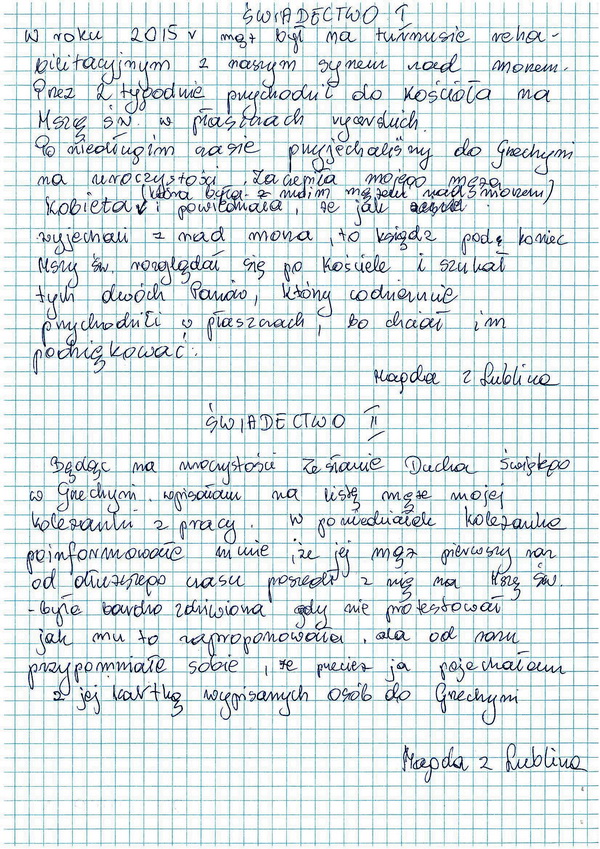 ŚWIADECTWO I
W roku 2015 r mąż był na turnusie reha-
bilitacyjnym z naszym synem nad morzem.
Przez 2 tygodnie przychodził do Kościoła na
Mszę św. w płaszczach rycerskich.
Po niedługim czasie przyjechaliśmy do Grechyni
na uroczystości. Zaczepiła mojego męża
(która była z moim mężem nad morzem)
kobieta i powiedziała, że jak
wyjechali z nad morza, to ksiądz pod koniec
Mszy św. rozglądał się po Kościele i szukał
tych dwóch Panów, którzy codziennie
przychodzili w płaszczach, bo chciał im
podziękować.
Magda z Lublina
ŚWIADECTWO II
Będąc na uroczystości Zesłanie Ducha Świętego
w Grechyni wpisałam na listę męża mojej
koleżanki z pracy. W poniedziałek koleżanka
poinformowała mnie że jej mąż pierwszy raz
od dłuższego czasu poszedł z nią na Mszę Św.
- była bardzo zdziwiona gdy nie protestował
jak mu to zaproponowała, ale od razu
przypomniała sobie, że przecież ja pojechałam
z jej kartką wypisanych osób do Grechyni
Magda z Lublina